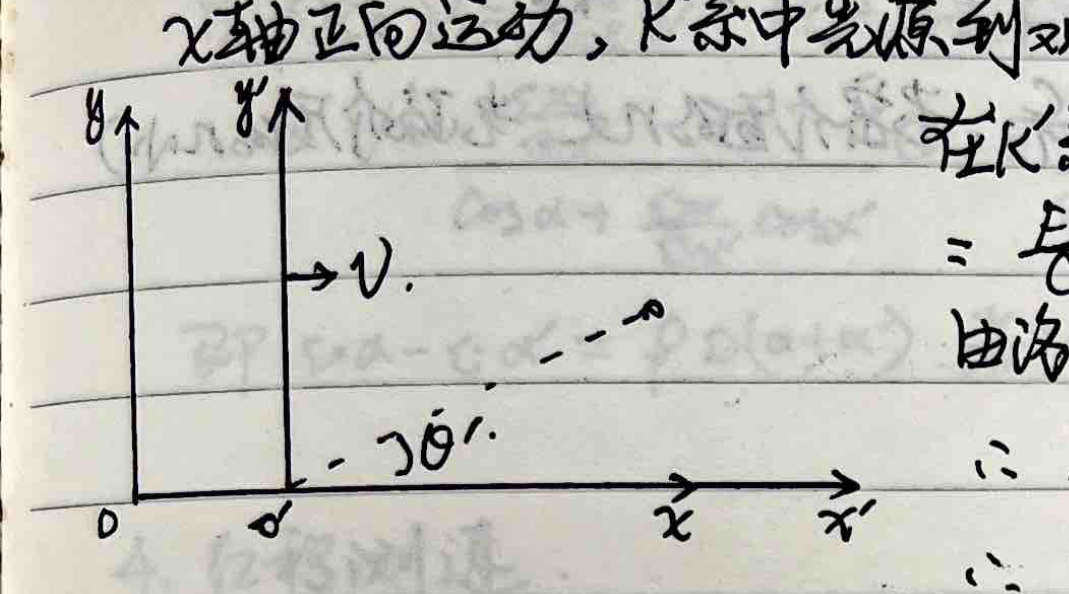 x轴正向运动，K系中光源到
y y'
在K'
→ v.
=
由洛
θ'.
∴
O O' x x'
∴